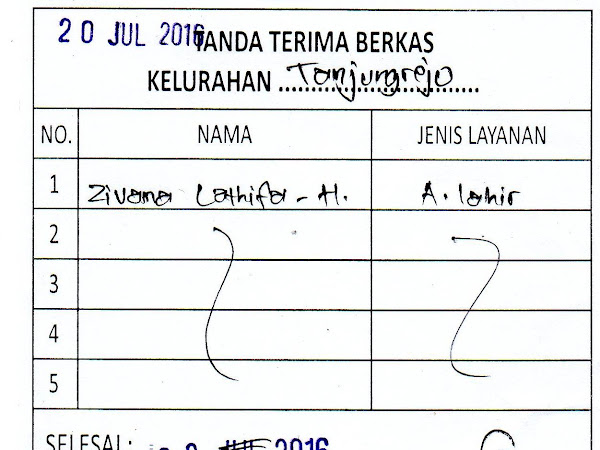 20 JUL 2016
TANDA TERIMA BERKAS
KELURAHAN ..... Tanjungrejo .....
NO. NAMA JENIS LAYANAN
1 Zivana Lathifa - H. A. lahir
2
3
4
5
SELESAI : 2016